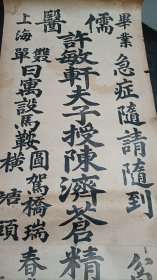 畢業急症隨請隨到
儒
許敏軒夫子授陳濟蒼精
醫
雙日寓駕鞍圓駕橋瑞春
上海單 橫塘頭